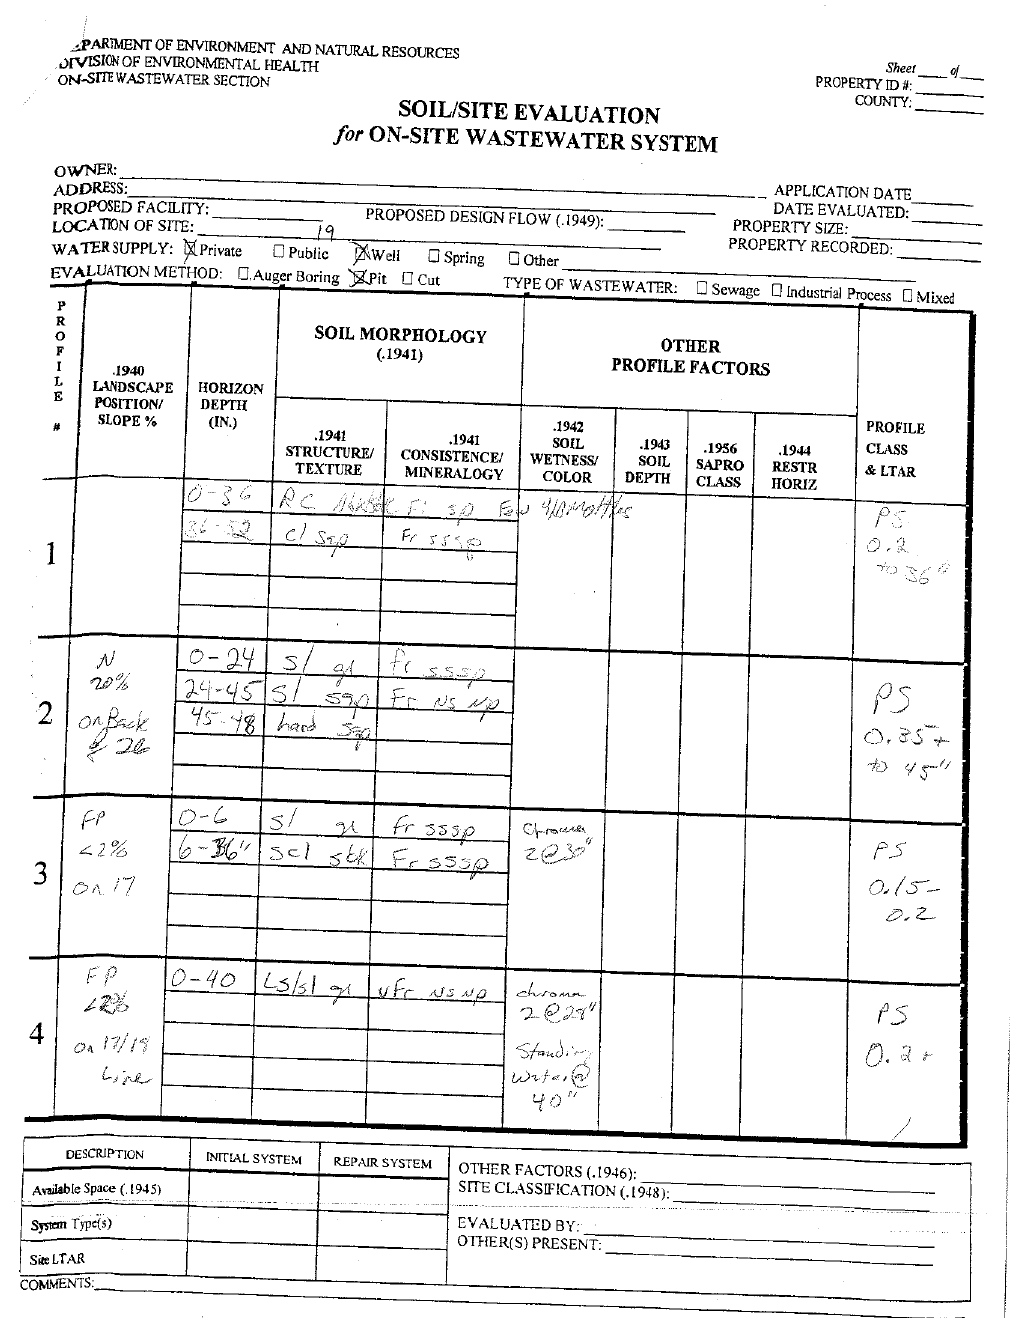 DEPARTMENT OF ENVIRONMENT AND NATURAL RESOURCES
DIVISION OF ENVIRONMENTAL HEALTH
ON-SITE WASTEWATER SECTION
Sheet ___ of ___
PROPERTY ID #:
COUNTY:
SOIL/SITE EVALUATION
for ON-SITE WASTEWATER SYSTEM
OWNER:
ADDRESS:
APPLICATION DATE
PROPOSED FACILITY:
PROPOSED DESIGN FLOW (.1949):
DATE EVALUATED:
LOCATION OF SITE: 19
PROPERTY SIZE:
WATER SUPPLY: ☒ Private ☐ Public ☒ Well ☐ Spring ☐ Other
PROPERTY RECORDED:
EVALUATION METHOD: ☐ Auger Boring ☒ Pit ☐ Cut
TYPE OF WASTEWATER: ☐ Sewage ☐ Industrial Process ☐ Mixed
PROFILE #
.1940 LANDSCAPE POSITION/ SLOPE %
HORIZON DEPTH (IN.)
SOIL MORPHOLOGY (.1941)
.1941 STRUCTURE/ TEXTURE
.1941 CONSISTENCE/ MINERALOGY
OTHER PROFILE FACTORS
.1942 SOIL WETNESS/ COLOR
.1943 SOIL DEPTH
.1956 SAPRO CLASS
.1944 RESTR HORIZ
PROFILE CLASS & LTAR
1
0-36 RC Fr sp Few Mottles
36-52 cl sgp Fr sssp
PS
0.2
to 36"
2
N
20%
on Back
of 26
0-24 sl gr fr sssp
24-45 sl sgp Fr NS NP
45-48 hard sgp
PS
0.35+
to 45"
3
FP
<2%
On 17
0-6 sl gr fr sssp
6-36" scl sbk Fr sssp
Chroma
2@30"
PS
0.15-
0.2
4
FP
<2%
On 17/18
Line
0-40 LS/sl gr vfr NS NP
chroma
2@28"
Standing
Water@
40"
PS
0.2+
DESCRIPTION
INITIAL SYSTEM
REPAIR SYSTEM
Available Space (.1945)
System Type(s)
Site LTAR
OTHER FACTORS (.1946):
SITE CLASSIFICATION (.1948):
EVALUATED BY:
OTHER(S) PRESENT:
COMMENTS: